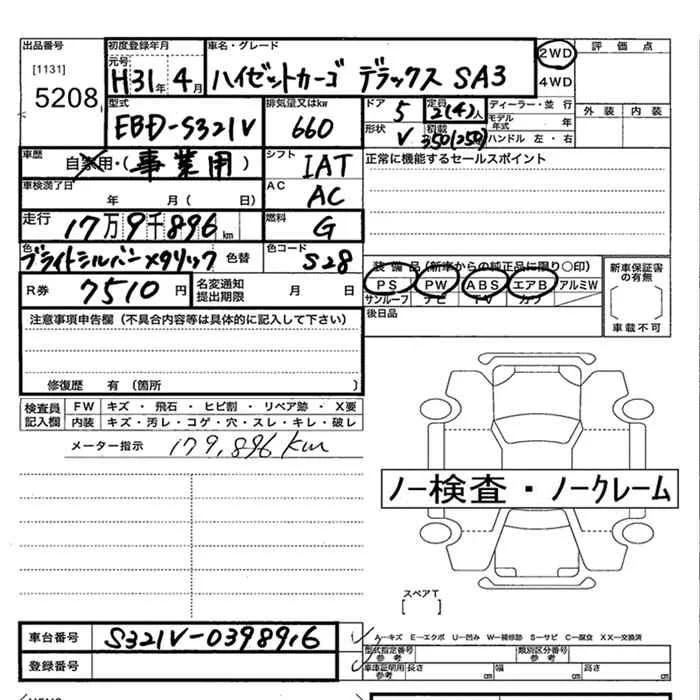 出品番号 初度登録年月 車名・グレード 2WD 評価点
[1131] 元号 H31年 4月 ハイゼットカーゴ デラックス SA3 4WD
5208 型式 排気量又はkw ドア 5 定員 2(4)人 ディーラー・並行 外装 内装
EBD-S321V 660 形状 V 積載 350(250) モデル年式 年
ハンドル 左・右
車歴 自家用・(事業用) シフト IAT 正常に機能するセールスポイント
車検満了日 年 月 (日) AC AC
走行 17万9千896km 燃料 G
色 ブライトシルバーメタリック 色替 色コード S28 装備品(新車からの純正品に限り○印) 新車保証書の有無
R券 7510円 名変通知提出期限 月 日 PS PW ABS エアB アルミW
サンルーフ ナビ TV カワ
注意事項申告欄(不具合内容等は具体的に記入して下さい) 後日品 車載不可
修復歴 有(箇所 )
検査員記入欄 FW キズ・飛石・ヒビ割・リペア跡・X要
内装 キズ・汚レ・コゲ・穴・スレ・キレ・破レ
メーター指示 179,896km
ノー検査・ノークレーム
スペアT
[ ]
車台番号 S321V-0398916 A―キズ E―エクボ U―凹み W―補修跡 S―サビ C―腐食 XX―交換済
登録番号 型式指定番号 参考 類別区分番号 参考
車庫証明用 参考 長さ cm 幅 cm 高さ cm